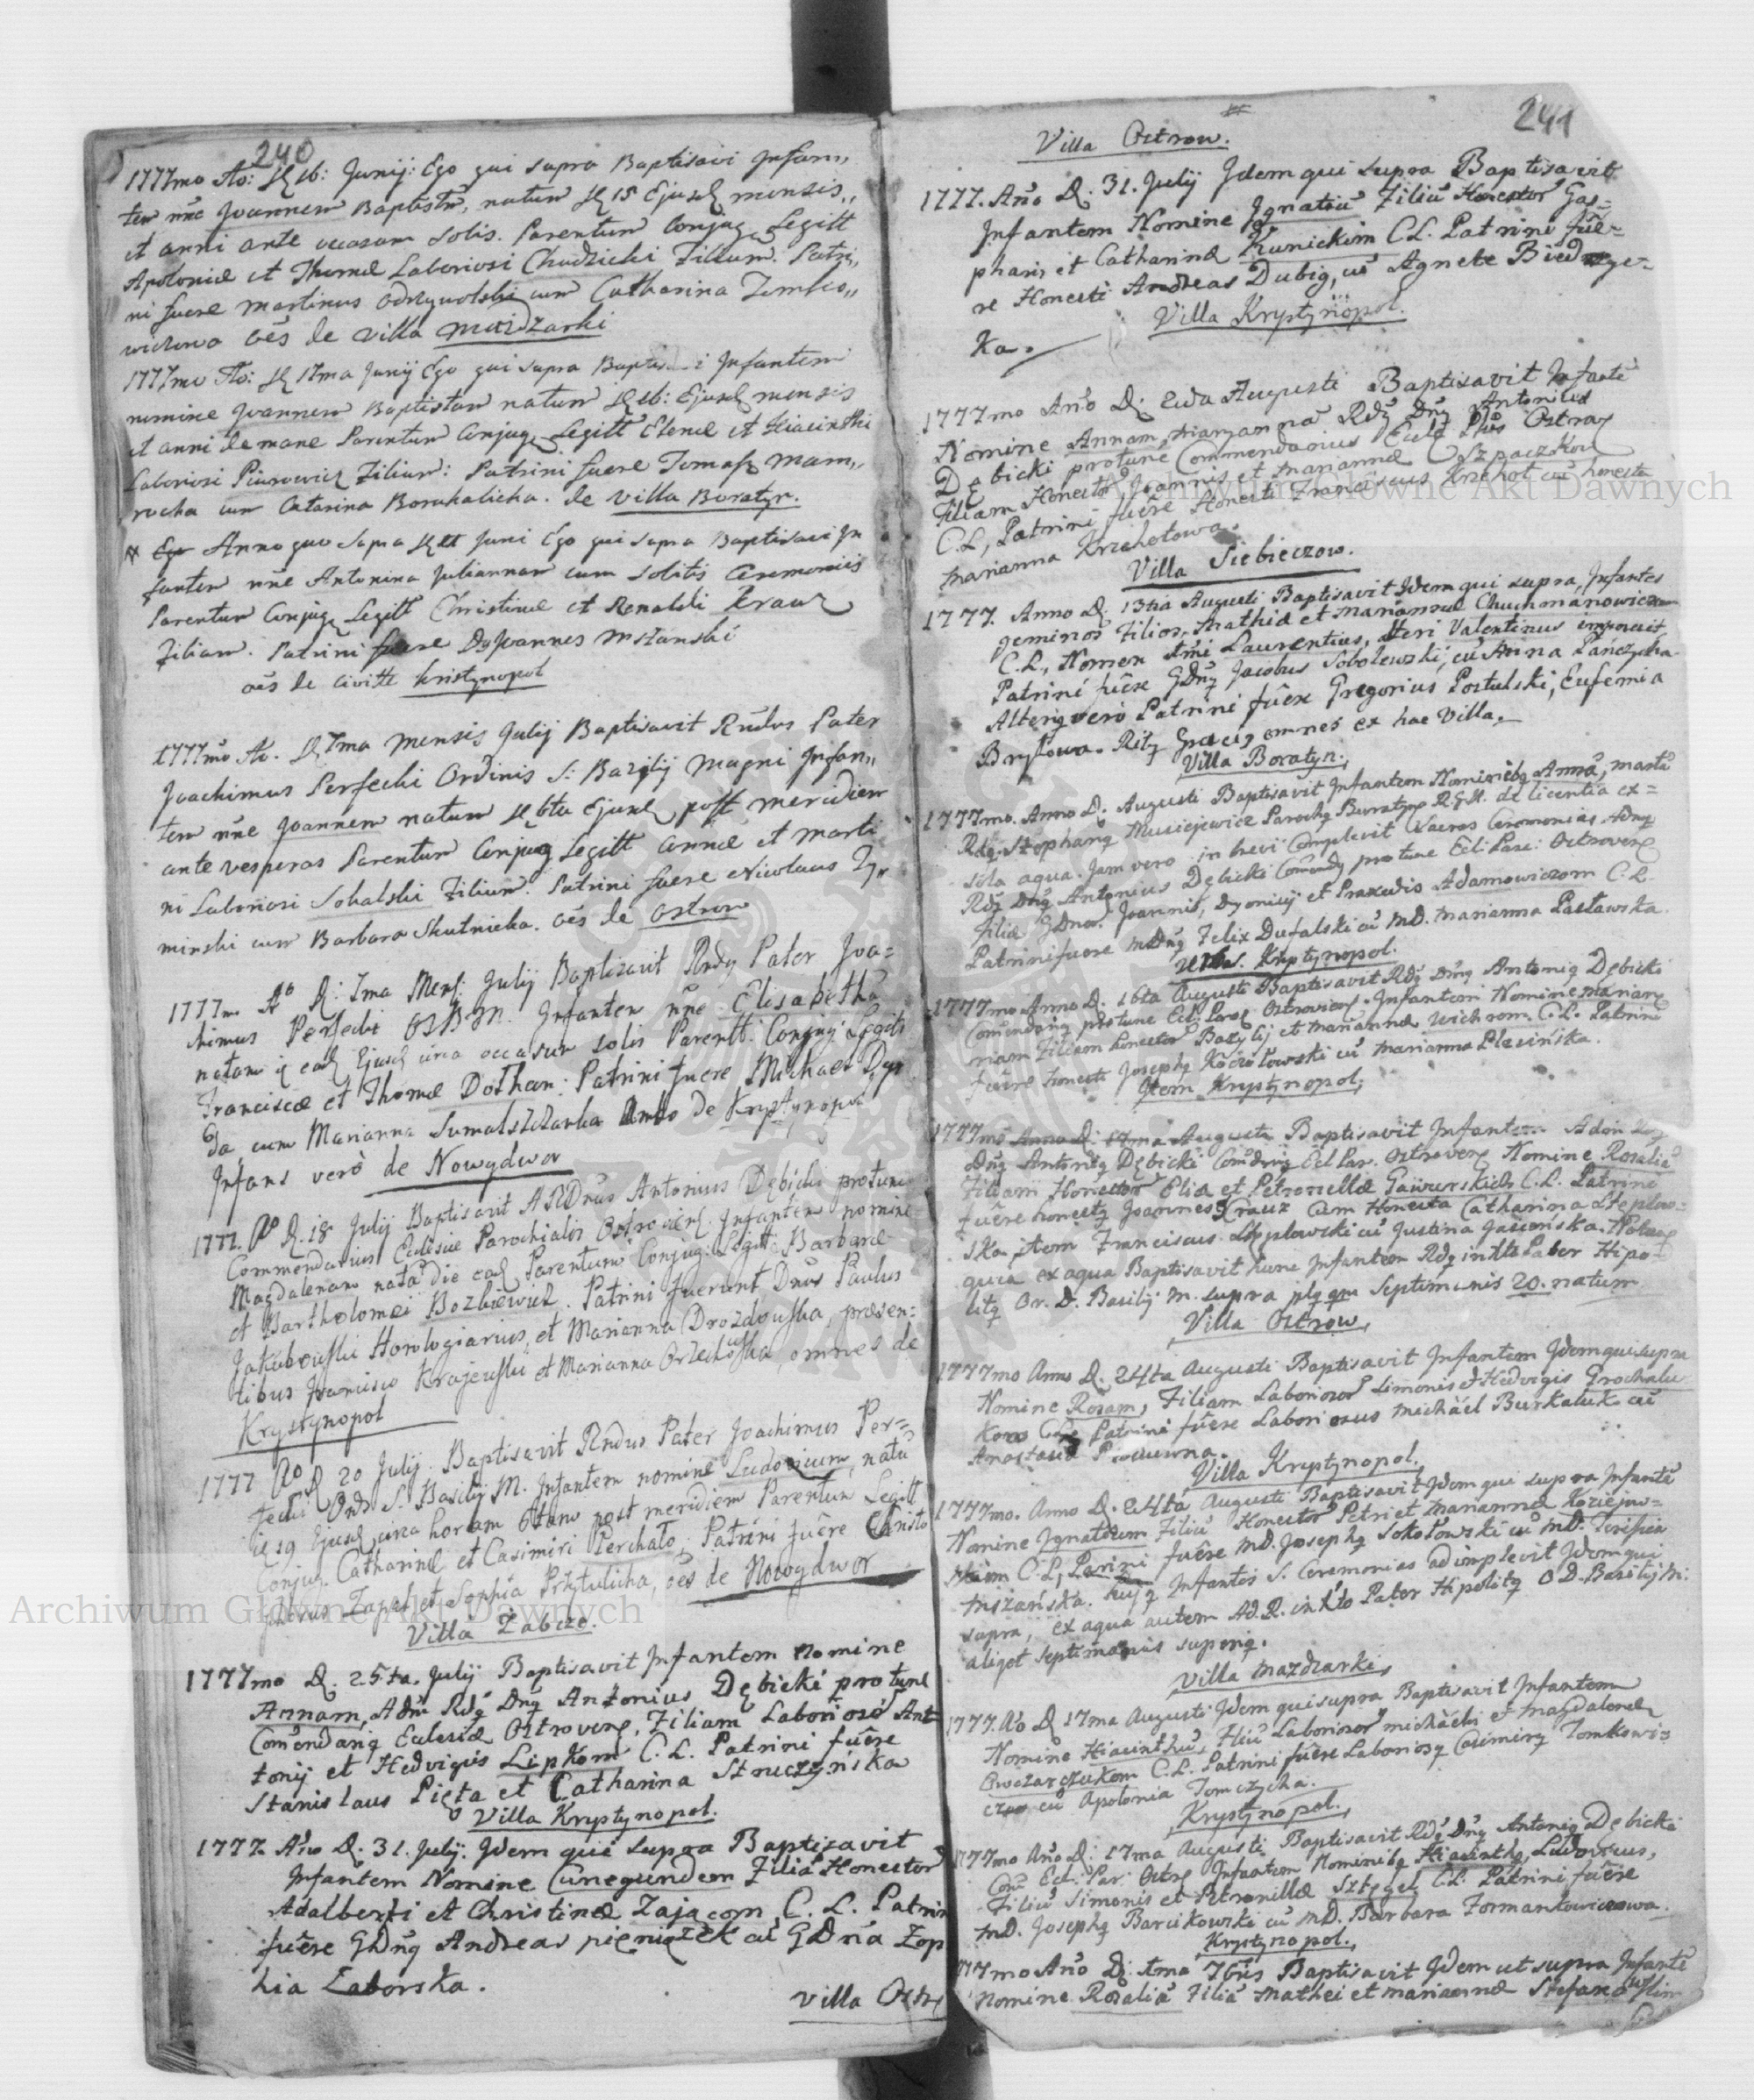 240
1777mo Ao: D 16: Junij: Ego qui supra Baptisavi Infan,,
tem nne Joannem Baptistm, natum D 15 Ejusd mensis,,
et anni ante occasum solis. Parentum Conjug Legitt
Apoloniæ et Thomæ Laboriosi Chudzicki Filium. Patri,,
ni fuere Martinus Odrzywolski cum Catharina
oes de villa Mazdzarki
1777mo Ao: D 17ma Junij Ego qui supra Infantem
nomine Joannem Baptistam natum D 16: Ejusd mensis
et anni de mane Parentum Conjug Legitt Elenæ et Hiacinthi
Laboriosi Filium: Patrini fuere Tomasz Mam,,
rocha cum Catarina Borukalicha. de villa Boratyn.
Anno quo supra Juni Ego qui supra Baptisavi In
fantem nne Antonina Juliannam cum solitis Ceremoniis
Parentum Conjug Legitt Christinæ et Renaldi Krauz
Filiam. Patrini fuere D Joannes Mstanski
oes de Civitt Kristynopol
1777mo Ao. D 7ma Mensis Julij Baptisavit Rndus Pater
Joachimus Perfecki Ordinis S: Bazylij Magni Infan,,
tem nne Joannem natum D 6ta Ejusd, post meridiem
ante vesperas Parentum Conjug Legitt Annæ et Marti
ni Laboriosi Sokalski Filium. Patrini fuere Nicolaus Zy,,
minski cum Barbara Skutnicka. oes de Ostrow
1777mo Ao D: 7ma Mens: Julij Baptizavit Rndy Pater Joa=
chimus Perfecki OSBM. Infantem nne Elisabetha
natam Ejusd circa occasum solis Parentt: Conjug: Legitt
Franciscæ et Thomæ Dothan: Patrini fuere Michael
da, cum Marianna Ambo de Krystynopol
Infans verò de Nowydwor
1777. Ao D. 18 Julij Baptisavit ARDnus Antonius Dębicki protunc
Commendarius Eclesiæ Parochialis Ostroviens. Infantem nomine
Magdalenam nata die ead Parentum Conjug: Legit: Barbaræ
et Bartholomei Bozkiewicz. Patrini fuerunt Dnus Paulus
Jakubouski Horologiarius, et Marianna Drozdouska, præsen:
tibus Krajeuski et Marianna Orzechouska omnes de
Krystynopol
1777 Ao D 20 Julij. Baptisavit Rndus Pater Joachimus Per=
fecki Ord: S. Basilij M. Infantem nomine Ludovicum, natu
19 Ejusd circa horam 6tam post meridiem Parentum Legitt
Conjug. Catharinæ et Casimiri Perchalo, Patrini fuêre Christo
phorus Zapal et Sophia Przytulicha, oes de Nowydwor
Villa Zabcze.
1777mo D. 25ta. Julij Baptisavit Infantem Nomine
Annam, Adm Rdg Dng Antonius Dębicki protunc
Comendariq Eclesiæ Ostrovens, Filiam Laborioso Ant
tonij et Hedvigis Lipkow C. L. Patrini fuêre
Stanislaus Pięta et Catharina Struczyńska
Villa Krystynopol.
1777. Año D. 31. July. Idem qui supra Baptizavit
Infantem Nomine Cunegundem Filiã Honestor
Adalberti et Christinæ Zającom C. L. Patrin
fuêre GDng Andreas pieniążek cũ GDña Zop
hia Laborska.
Villa Ostr
241
Villa Ostrow.
1777. Año D. 31. Julij Idem qui supra Baptisavit
Infantem Nomine Ignatiũ Filiũ Honestor Gas=
paris et Catharinæ Kunickim C L. Patrini fuê=
re Honesti Andreas Dubig, cũ Agnete
Ka.
Villa Krystynopol.
1777mo Año D. 2da Augusti Baptisavit Infantẽ
Nomine Annam Maryanna Rdg Dng Antonius
Dębicki protunc Commendarius Ostrov
Filiam Honestor Joannis et Mariannæ Szpaczkow
C. L, Patrini fuêre Honesti Franciscus Krzehot cũ honesta
Marianna Krzehotowa.
Villa Siebieczow.
1777. Anno D. 13tia Augusti Baptisavit Idem qui supra, Infantes
geminos Filios, Mathiæ et Mariannæ Chuchmanowiczom
C. L, Nomen Laurentius, Alteri Valentinus imposuit
Patrini fuêre GDng Jacobus Sobolewski, cũ Anna Pańczycha
Alteriq verò Patrini fuêre Gregorius Postulski, Eufemia
Brysowa. Ritg Græcg omnes ex hac Villa.
Villa Boratyn.
1777mo. Anno D. Augusti Baptisavit Infantem Nominibg Annã, Martã
Rdg Stephanq Parochq Buratyns R.G.U. de licentia ex=
sola aqua. Jam vero in brevi Complevit Sacras Ceremonias Adm
Rdg Dng Antonius Dębicki Comendg pro tunc Ecl: Par: Ostrovens
filiæ GDnor Joannis, Dyonisij et Praxedis Adamowiczom C. L.
Patrini fuere MDng Felix Dufalski cũ MD. Marianna Pastawska
Krystynopol.
1777mo Anno D. 16ta Augusti Baptisavit Rdg Dng Antoniq Dębicki
Comendariq protunc Ecl: Paro Ostroviens. Infantem Nomine Marian
nam Filiam honestor Bazylij et Mariannæ Wichrom. C. L. Patrini
fuêre honesti Josephq Koziołowski cũ Marianna Plesińska.
Item Krystynopol.
1777mo Anno D. 17ma Augusti Baptisavit Infantem Adm Rdg
Dng Antoniq Dębicki Comdriq Ecl Par. Ostrovens Nomine Rosaliã
Filiam Honestor Eliæ et Petronellæ Gawurskich C. L. Patrini
fuêre honestg Joannes Krauz Cum Honesta Catharina
ska item Franciscus cũ Justina Nota
quia ex aqua Baptisavit hunc Infantem Rdg Pater Hipo
litg Or. D. Basilij M. supra Septimanis 20. natum
Villa Ostrow,
1777mo Anno D. 24ta Augusti Baptisavit Infantem Idem qui supra
Nomine Rosam, Filiam Laborioror Simonis & Hedvigis Grochalu
Kow C. L. Patrini fuêre Laboriosus Michäel Burkaluk cũ
Anastasia
Villa Krystynopol.
1777mo. Anno D. 24ta Augusti Baptisavit Idem qui supra Infantẽ
Nomine Ignatium Filiũ Honestor Petri et Mariannæ
C. L, Parini fuêre MD. Josephq Sokołowski cũ MD. Terésia
Mszańska. hujg Infantis S. Ceremonias adimplevit Idem qui
supra, ex aqua autem Ad. R. Pater Hipolitg O D. Basilij M.
aliqot septimanis superiq.
Villa Mazdzarki
1777. Ao D 17ma Augusti Idem qui supra Baptisavit Infantem
Nomine Hiacinthũ, Filiũ Laboriosor Michäelis et Magdalenæ
Owczarczukom C. L. Patrini fuêre Laboriosg Casimirq Tomkowi=
cũ Apolonia Tomczycha.
Krystynopol.
1777mo Año D: 17ma Augusti Baptisavit Rdg Dng Antoniq Dębicki
Com Ecl. Par. Ostrs Infantem Nominibg Hiacinthq Ludovicus,
Filiũ Simonis et Petronillæ Sztegel C L. Patrini fuêre
MD. Josephq Barcikowski cũ MD. Barbara Formankowiczowa.
Krystynopol.
1777mo Año D: 1ma 7bris Baptisavit Idem ut supra Infantẽ
Nomine Rosaliã Filiã Mathei et Mariannæ
Archiwum Główne Akt Dawnych
Archiwum Główne Akt Dawnych